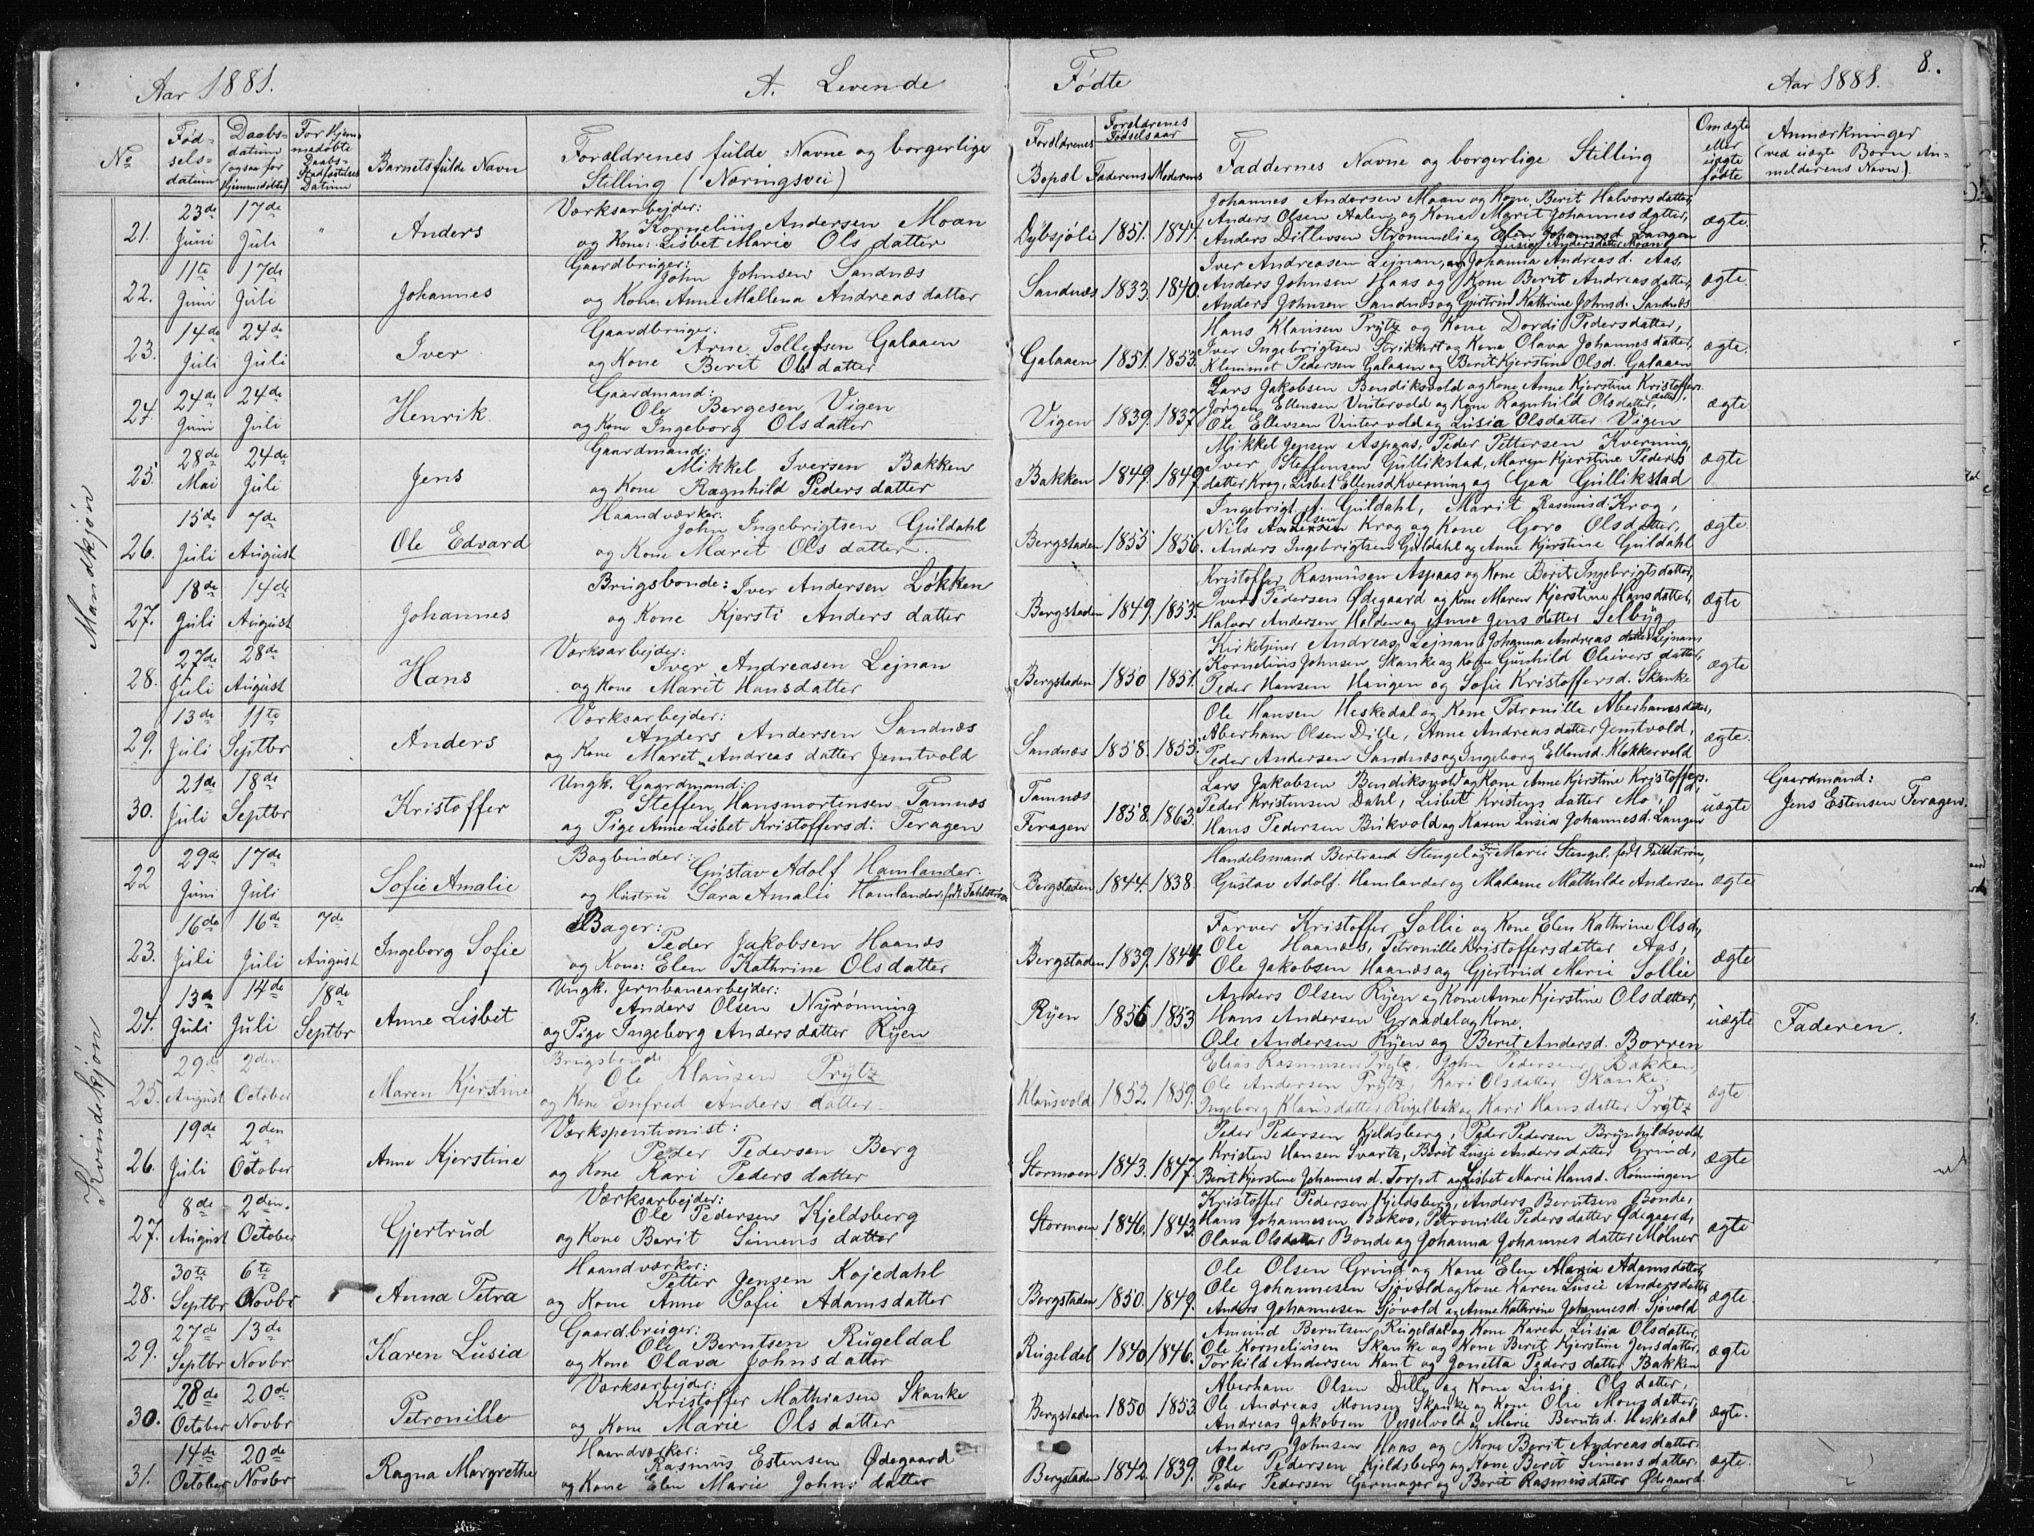 Aar 1881. A. Levende Fødte Aar 1881. 8.
No Fødselsdatum Daabsdatum (ogsaa for hjemmedøbte) For Hjemmedøbte Daabs-Stadfæstelses Datum Barnets fulde Navn Forældrenes fulde Navne og borgerlige Stilling (Næringsvei) Forældrenes Bopæl Forældrenes Fødselsaar Faderens Moderens Faddernes Navne og borgerlige Stilling Om ægte eller uægte fødte Anmærkninger (ved uægte Børn Anmelderens Navn).
Mandkjøn
21. 23de Juni 17de Juli " Anders
Værksarbejder:
Kornelius Andersen Moan
og Kone: Lisbet Marie Olsdatter
Dybsjöli 1851. 1844.
Johannes Andersen Moan og Kone Berit Halvorsdatter,
Anders Olsen Aalen og Kone Marit Johannesdatter,
Anders Ditlevsen Strømmeli og Elen Johannesd. Langen
Lusia Andersdatter Moan
ægte.
22. 11te Juni 17de Juli Johannes
Gaardbruger:
John Johnsen Sandnæs
og Kone Anne Mallena Andreasdatter
Sandnæs 1833. 1840.
Iver Andreasen Lejnan, og Johanna Andreasd. Aas,
Anders Johnsen Haas og Kone Berit Andreasdatter,
Anders Johnsen Sandnæs og Gjertrud Kathrine Johnsd. Sandnæs
ægte.
23. 14de Juli 24de Juli Iver
Gaardbruger:
Arne Tollefsen Galaaen
og Kone Berit Olsdatter
Galaaen 1851. 1853.
Hans Klausen Prytz og Kone Dordi Pedersdatter,
Iver Ingebrigtsen Strikkert og Kone Olava Johannesdatter,
Klemmet Pedersen Galaaen og Berit Kjerstine Olsd. Galaaen
ægte.
24. 24de Juni 24de Juli Henrik
Gaardmand:
Ole Bergesen Vigen
og Kone Ingeborg Olsdatter
Vigen 1839. 1837.
Lars Jakobsen Bendiksvold og Kone Anne Kjerstine Kristoffersdatter,
Jørgen Ellensen Vintervold og Kone Ragnhild Olsdatter,
Ole Ellevsen Vintervold og Lusia Olsdatter Vigen
ægte
25. 28de Mai 24de Juli Jens
Gaardmand:
Mikkel Iversen Bakken
og Kone Ragnhild Pedersdatter
Bakken 1849. 1849.
Mikkel Jensen Aspaas, Peder Pettersen Kverning,
Iver Steffensen Gullikstad, Maren Kjerstine Pedersdatter Krog, Lisbet Ellensd Kverning og Gea Gullikstad
ægte
26. 15de Juli 7de August Ole Edvard
Haandværker:
John Ingebrigtsen Guldahl
og Kone Marit Olsdatter.
Bergstaden 1855. 1856.
Ingebrigt J. Guldahl, Marit Rasmusd. Krog,
Nils Olsen Krog og Kone Goro Olsdatter,
Anders Ingebrigtsen Guldahl og Anne Kjerstine Guldahl
ægte.
27. 18de Juli 14de August Johannes
Brugsbonde: Iver Andersen Løkken
og Kone Kjersti Andersdatter
Bergstaden 1849. 1853.
Kristoffer Rasmusen Aspaas og Kone Berit Ingebrigtsdatter,
Iver Pedersen Ødegaard og Kone Maren Kjerstine Hansdatter,
Halvor Andersen Holden og Anne Jensdatter Selbyg
ægte
28. 27de Juli 28de August Hans
Værksarbejder:
Iver Andreasen Lejnan
og Kone Marit Hansdatter
Bergstaden 1850. 1851.
Kirketjener Andreas Lejnan, Johanna Andreasdatter Lejnan,
Kornelius Johnsen Skanke og Kone Gunhild Oliversdatter,
Peder Hansen Haugen og Sofie Kristoffersd. Skanke
ægte
29. 13de Juli 11te Septbr Anders
Værksarbejder:
Anders Andersen Sandnæs
og Kone Maret Andreasdatter Jemtvold
Sandnæs 1858. 1855.
Ole Hansen Heskedal og Kone Petronille Aberhamsdatter,
Aberham Olsen Dille, Anne Andreasdatter Jemtvold,
Peder Andersen Sandnæs og Ingeborg Ellensd. Klokkervold
ægte.
30. 21de Juli 18de Septbr Kristoffer
Ungk. Gaardmand:
Steffen Hansmortensen Tamnæs
og Pige Anne Lisbet Kristoffersd. Feragen
Tamnæs Feragen 1858. 1863.
Lars Jakobsen Bendiksvold og Kone Anne Kjerstine Kristoffersd.
Peder Kristensen Dahl, Lisbet Kristensdatter Mo,
Hans Pedersen Bukvold og Karen Lusia Johannesd. Langen
uægte
Gaardmand:
Jens Estensen Feragen.
Kvindekjøn
22 29de Juni 17de Juli Sofie Amalie
Bogbinder:
Gustav Adolf Hamlander.
og Hustru Sara Amalie Hamlander, født Fahlström
Bergstaden 1844. 1838.
Handelsmand Bertrand Stengel og Fru Marie Stengel, født Fahlström,
Gustav Adolf. Hamlander og Madame Mathilde Andersen
ægte
23. 16de Juli 16de Juli 7de August Ingeborg Sofie
Bager:
Peder Jakobsen Haanæs
og Kone: Elen Kathrine Olsdatter
Bergstaden 1839. 1844
Farver Kristoffer Sollie og Kone Elen Kathrine Olsd,
Ole Haanæs, Petronille Kristoffersdatter Aas,
Ole Jakobsen Haanæs og Gjertrud Marie Sollie
ægte
24. 13de Juli 14de Juli 18de Septbr Anne Lisbet
Ungk. Jernbanearbejder:
Anders Olsen Nyrønning
og Pige Ingeborg Andersdatter Ryen
Ryen 1856 1853
Anders Olsen Ryen og Kone Anne Kjerstine Olsdatter,
Hans Andersen Graadal og Kone.
Ole Andersen Ryen og Berit Andersd. Borren
uægte
Faderen.
25. 29de August 2den October Maren Kjerstine
Brugsbonde
Ole Klausen Prytz
og Kone Enfred Andersdatter.
Klausvold 1852 1859.
Elias Rasmusen Prytz, John Pedersen Bakken,
Ole Andersen Prytz, Kari Olsdatter Skanke,
Ingeborg Klausdatter Rugelbak og Kari Hansdatter Prytz
ægte
26. 19de Juli 2den October Anne Kjerstine
Værkspentionist:
Peder Pedersen Berg
og Kone Kari Pedersdatter
Stormoen 1843. 1847.
Peder Pedersen Kjeldsberg, Peder Pedersen Brynhildsvold,
Kristen Hansen Svartz, Berit Lusie Andersdatter Grind,
Berit Kjerstine Johannesd. Torpet og Lisbet Marie Hansd. Rønningen
ægte
27. 8de August 2den October Gjertrud
Værksarbejder:
Ole Pedersen Kjeldsberg
og Kone Berit Simensdatter
Stormoen 1846. 1843.
Kristoffer Pedersen Kjeldsberg, Anders Berntsen Bonde,
Hans Johannesen Bakos, Petronille Pedersdatter Ødegaard,
Olava Olsdatter Bonde og Johanna Johannesdatter Mølner
ægte
28. 30te Septbr 6te Novbr Anna Petra
Haandværker:
Petter Jensen Kojedahl
og Kone Anne Sofie Adamsdatter
Bergstaden 1850. 1849.
Ole Olsen Grind og Kone Elen Maria Adamsdatter,
Ole Johannesen Sjøvold og Kone Karen Lusie Andersdatter,
Anders Johannesen Sjøvold og Anne Kathrine Johannesd. Sjøvold
ægte.
29. 27de Septbr 13de Novbr Karen Lusia
Gaardbruger:
Ole Berntsen Rugeldal
og Kone Olava Johnsdatter
Rugeldal 1840 1846.
Amund Berntsen Rugeldal og Kone Karen Lusia Olsdatter,
Ole Korneliusen Skanke og Kone Berit Kjerstine Jensdatter,
Torkild Andersen Kant og Jonetta Pedersdatter Bakken
ægte
30. 28de October 20de Novbr Petronille
Værksarbejder:
Kristoffer Mathiasen Skanke
og Kone Marie Olsdatter
Bergstaden 1850 1853.
Aberham Olsen Dilly og Kone Lusie Olsdatter,
Ole Andreas Monsen Skanke og Kone Olie Monsdatter,
Andreas Jakobsen Vesselvold og Marie Berntsd. Heskedal
ægte.
31. 14de October 20de Novbr Ragna Margrethe
Haandværker:
Rasmus Estensen Ødegaard
og Kone Elen Marie Johnsdatter
Bergstaden 1842. 1839.
Anders Johnsen Haas og Kone Berit Andreasdatter.
Ole Pedersen Kjeldsberg og Kone Berit Simensdatter
Peder Pedersen Garmager og Berit Rasmusdatter Ødegaard.
ægte.